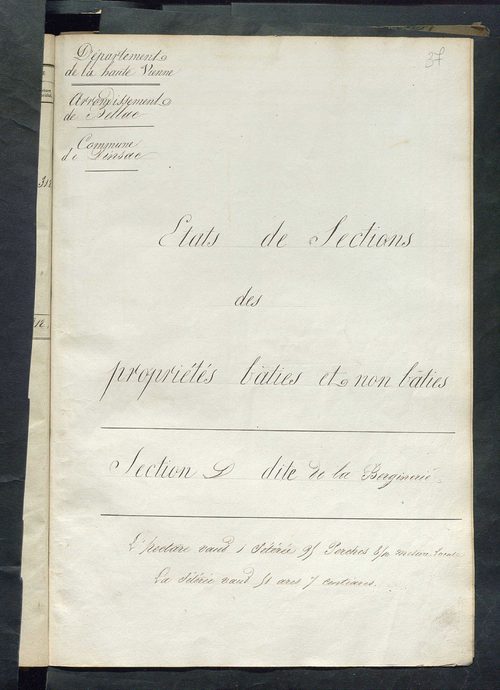 37
Département
de la haute Vienne
Arrondissement
de Bellac
Commune
de
Etats de Sections
des
propriétés bâties et non bâties
Section D dite de la
L'hectare vaut 1 Séterée 95 Perches
La Séterée vaut 51 ares 7 centiares.